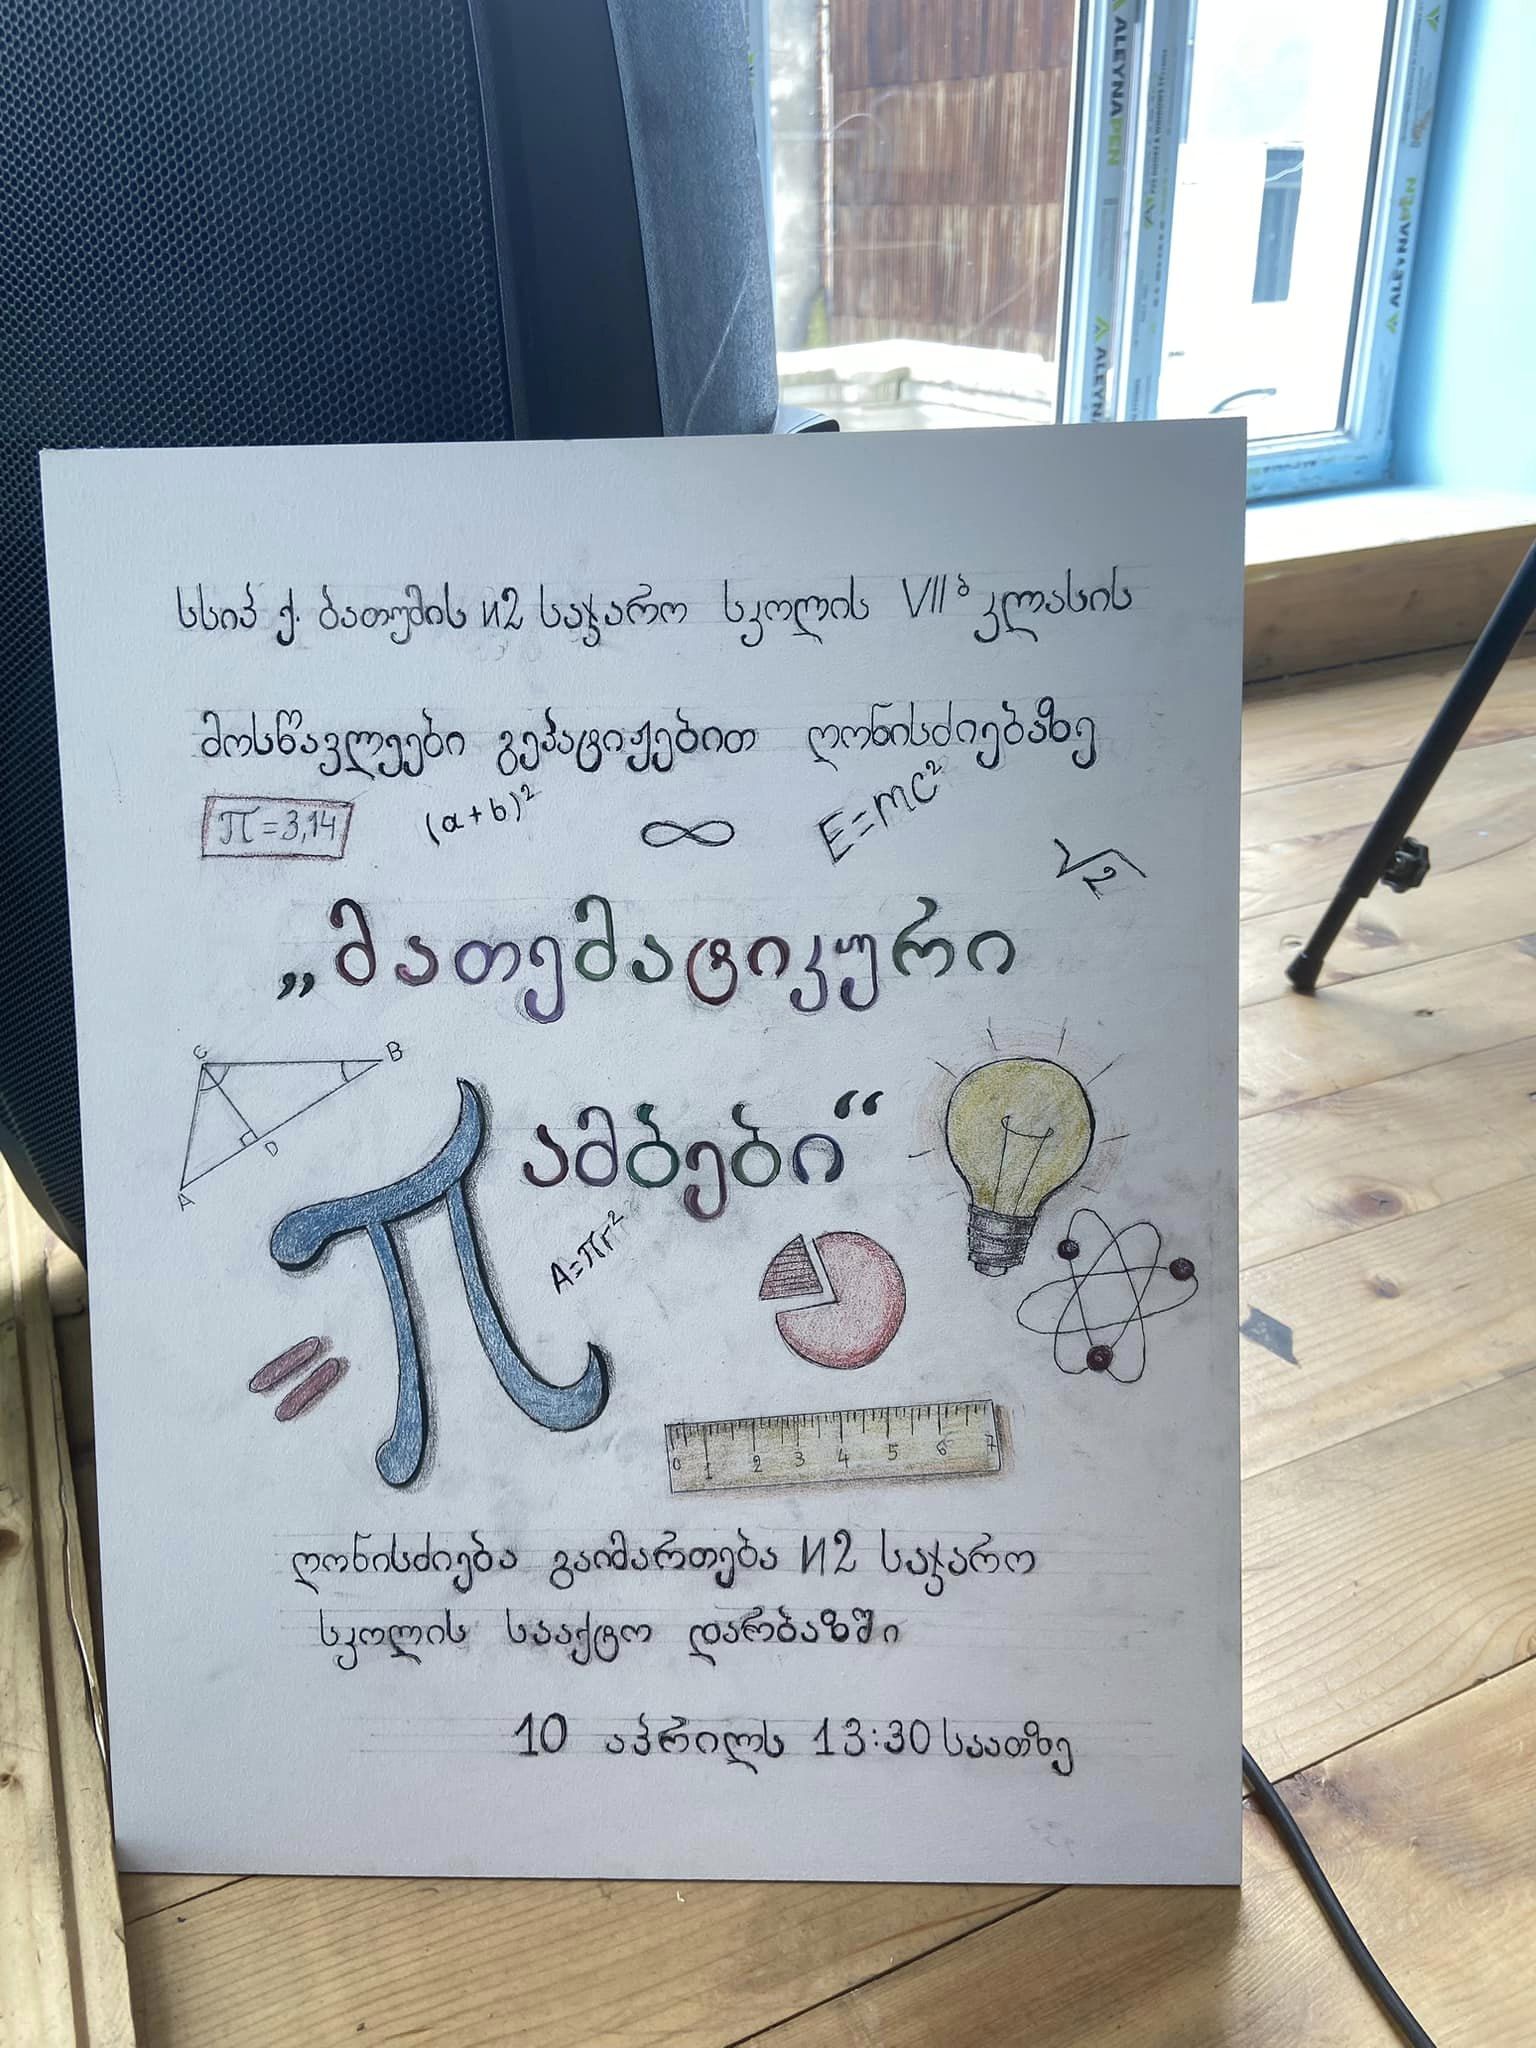 ALEYNAPEN
ALEYNAPEN
სსიპ ქ. ბათუმის N2 საჯარო სკოლის VIIბ კლასის
მოსწავლეები გეპატიჟებით ღონისძიებაზე
π=3,14
(a+b)²
∞
E=mc²
√2
„მათემატიკური
C
B
ამბები“
D
A
π
A=πr²
=
0 1 2 3 4 5 6 7
ღონისძიება გაიმართება N2 საჯარო
სკოლის სააქტო დარბაზში
10 აპრილს 13:30 საათზე